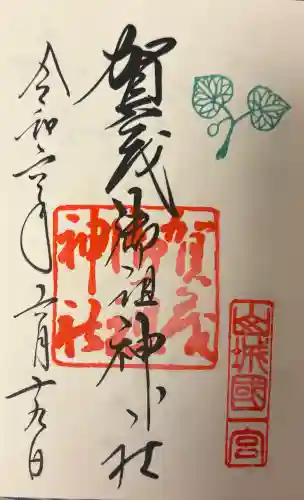 山城國
一宮
賀茂御祖神社
賀茂
御祖
神社
令和六年 月十九日